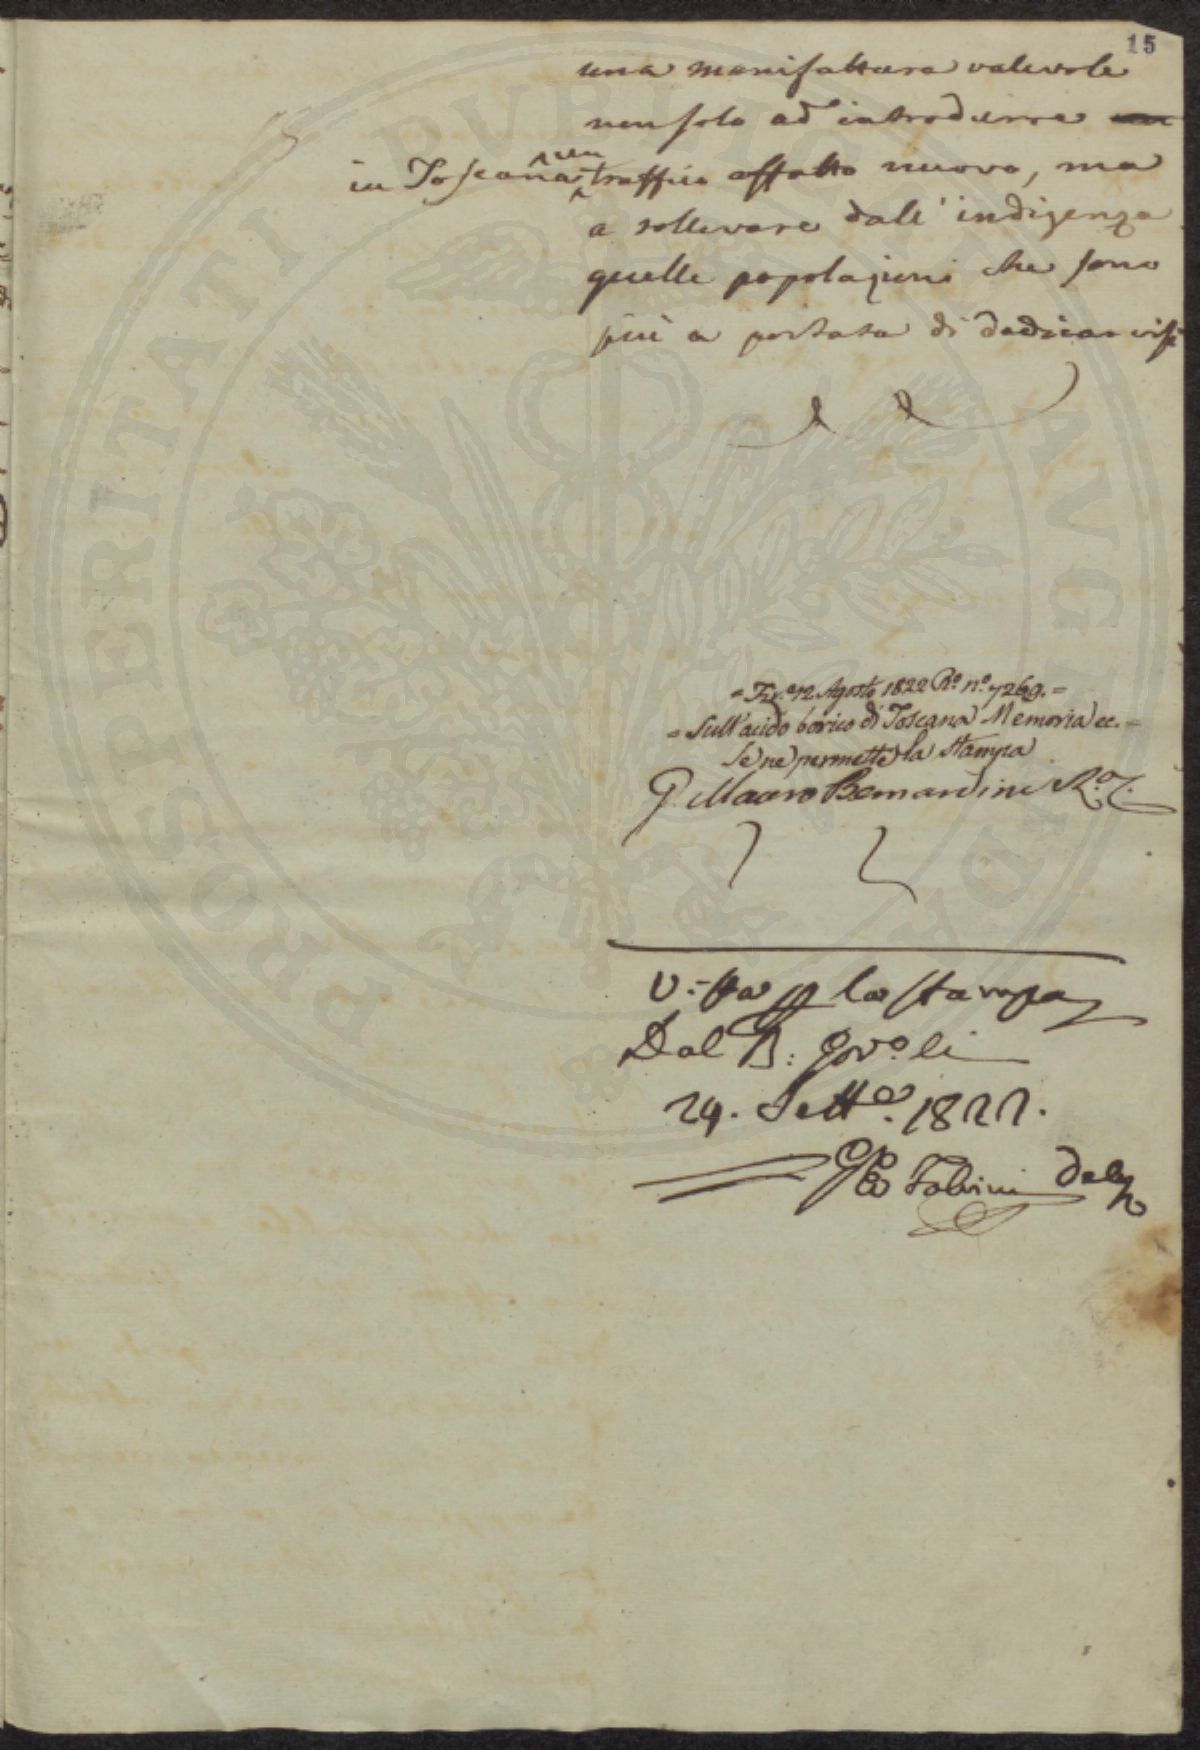 15
una manifattura valevole
non solo ad introdurre un
in Toscana un traffico affatto nuovo, ma
a sollevare dall'indigenza
quelle popolazioni che sono
più a portata di dedicarvisi
= 12 Agosto 1822 Ro. n.o 7269. =
= Sull'acido borico di Toscana Memoria ec. =
Se ne permette la stampa
P. Mauro Bernardini
Vista p la stampa
Dal B. Gov.o li
24. Sett.e 1822.
Fabrini
PROSPERITATI PVBLICAE AVGENDAE